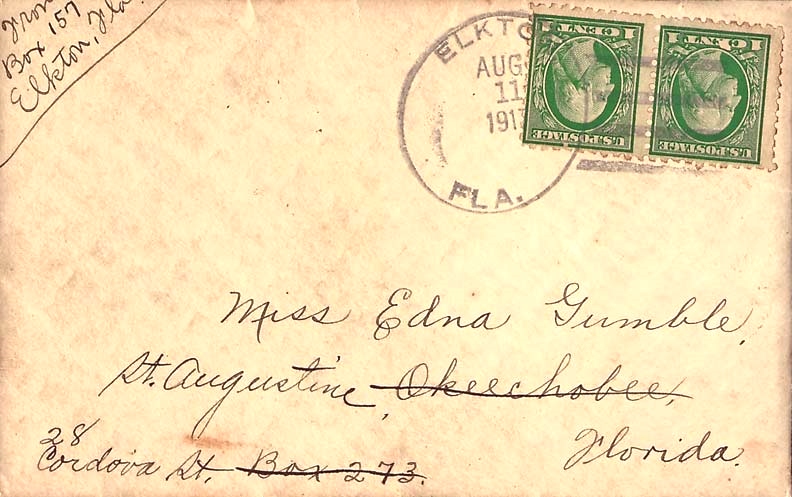 From
Box 157
Elkton, Fla.
ELKTO
AUG
11
FLA.
1 CENT 1
U.S. POSTAGE
1 CENT 1
U.S. POSTAGE
Miss Edna Gumble,
St. Augustine, Okeechobee,
Florida.
28
Cordova St, Box 273.